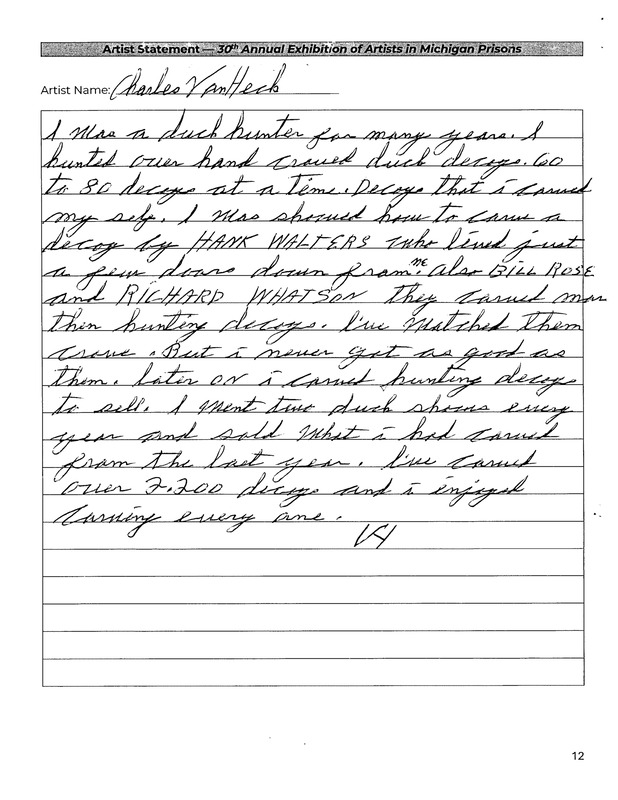 Artist Statement — 30th Annual Exhibition of Artists in Michigan Prisons
Artist Name: Charles VanHeck
I was a duck hunter for many years. I
hunted over hand craved duck decoys. 60
to 80 decoys at a time. Decoys that i carved
my self. I was showed how to carve a
decoy by HANK WALTERS who lived just
a few doors down from me. Also BILL ROSE
and RICHARD WHATSON they carved mor
then hunting decoys. I've watched them
crave. But i never got as good as
them. later on i carved hunting decoys
to sell. I went two duck shows every
year and sold what i had carved
from the last year. I've carved
over 2.200 decoys and i enjoyed
carving every one.
12